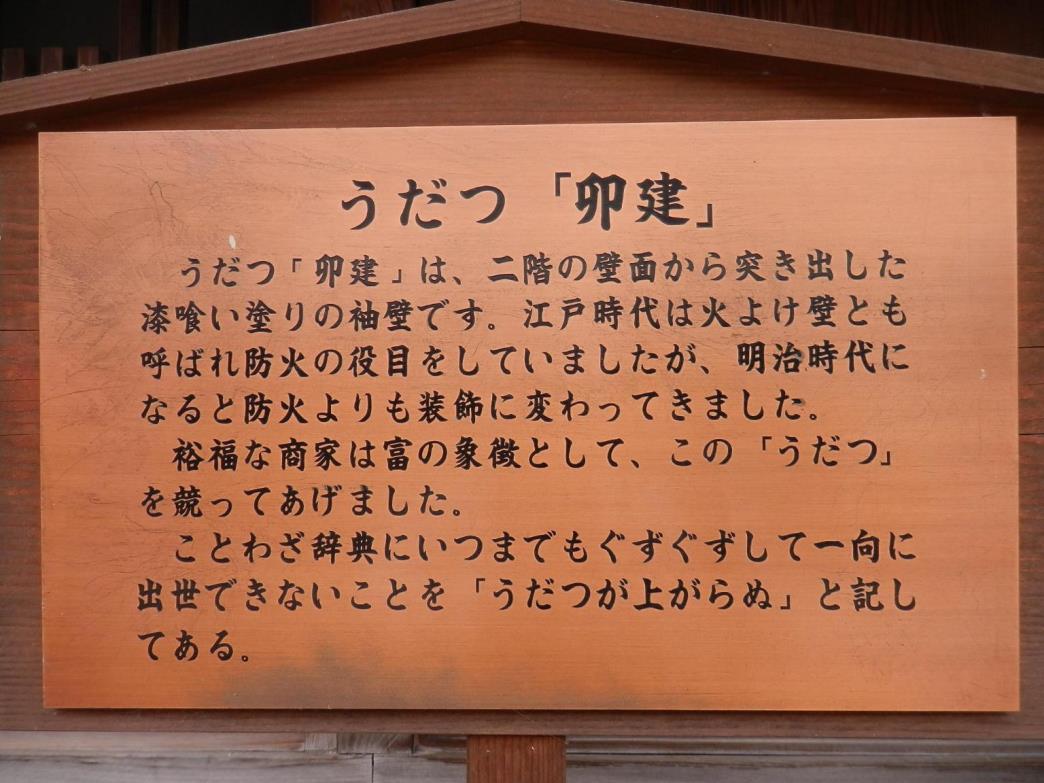 うだつ「卯建」
うだつ「卯建」は、二階の壁面から突き出した
漆喰い塗りの袖壁です。江戸時代は火よけ壁とも
呼ばれ防火の役目をしていましたが、明治時代に
なると防火よりも装飾に変わってきました。
裕福な商家は富の象徴として、この「うだつ」
を競ってあげました。
ことわざ辞典にいつまでもぐずぐずして一向に
出世できないことを「うだつが上がらぬ」と記し
てある。